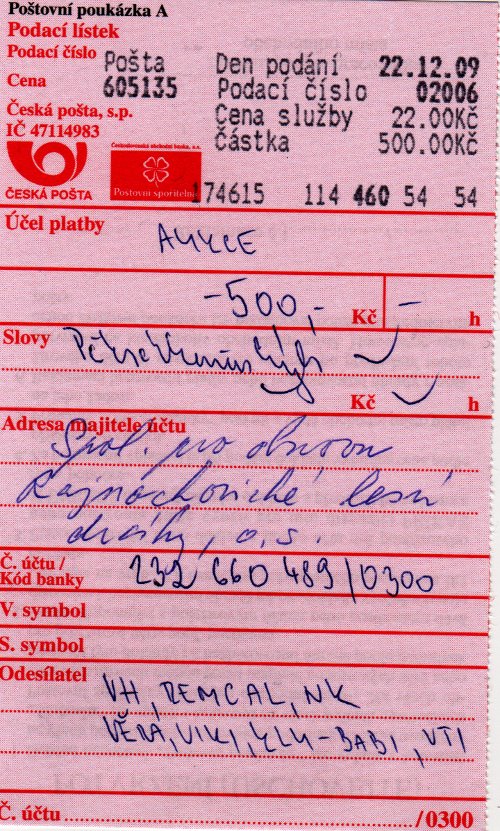 Poštovní poukázka A
Podací lístek
Podací číslo
Pošta Den podání 22.12.09
Cena
605135 Podací číslo 02006
Česká pošta, s.p. Cena služby 22.00Kč
IČ 47114983 Částka 500.00Kč
Československá obchodní banka, a.s.
ČESKÁ POŠTA Poštovní spořitelna
174615 114 460 54 54
Účel platby
-500,- Kč - h
Slovy Pětsetkorunčeských
Kč h
Adresa majitele účtu
Spol. pro obnovu
Rajnochovické lesní
dráhy, o.s.
Č. účtu /
Kód banky 232 660 489/0300
V. symbol
S. symbol
Odesílatel VH, REMCAL, NK
VĚRA, VIKI, BABI, VTI
Č. účtu ........ /0300